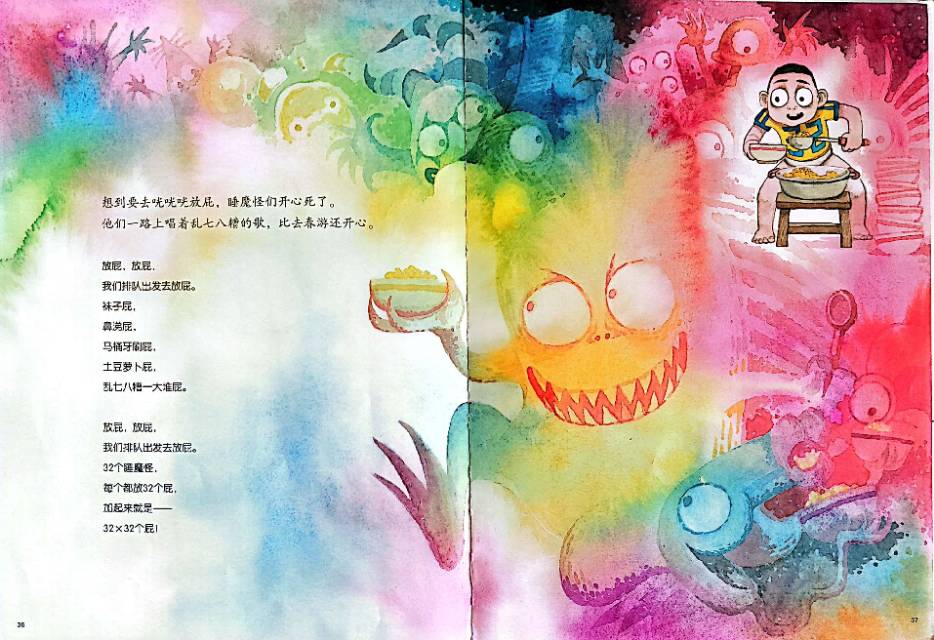 想到要去咣咣咣放屁，睡魔怪们开心死了。
他们一路上唱着乱七八糟的歌，比去春游还开心。
放屁，放屁，
我们排队出发去放屁。
袜子屁，
鼻涕屁，
马桶牙刷屁，
土豆萝卜屁，
乱七八糟一大堆屁。
放屁，放屁，
我们排队出发去放屁。
32个睡魔怪，
每个都放32个屁，
加起来就是——
32×32个屁！
36
37